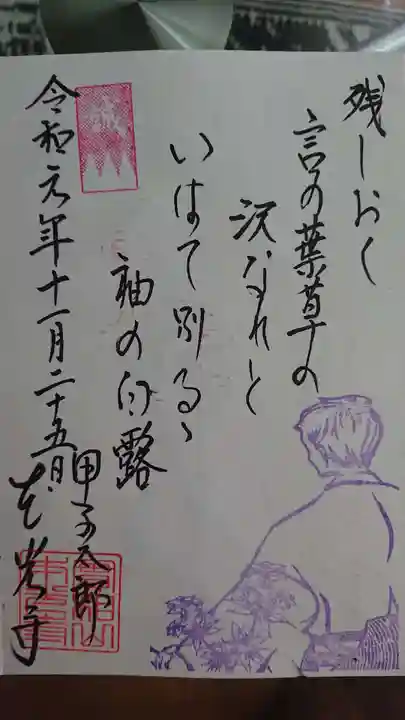 残しおく
言の葉草の
沢なれと
いはて別るゝ
袖の白露
甲子太郎
誠
令和元年十一月二十五日
光岩寺